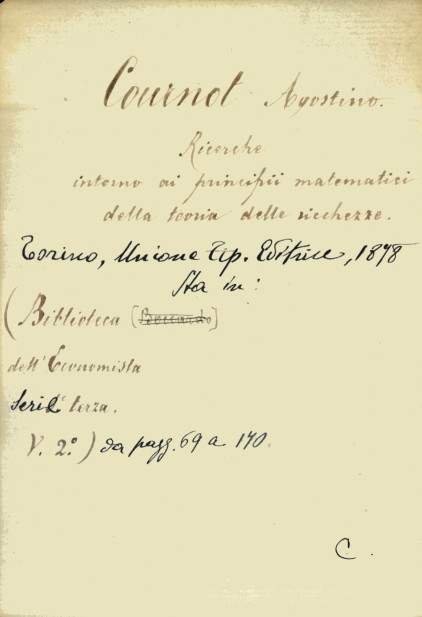 Cournot Agostino.
Ricerche
intorno ai principii matematici
della teoria delle ricchezze.
Torino, Unione Tip. Editrice, 1878
Sta in:
(Biblioteca [Boccardo]
dell'Economista
Serie terza.
V. 2.º) da pagg. 69 a 170.
C.